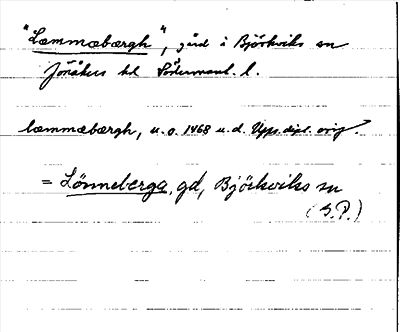 "Læmmæbærgh", gård i Björkviks sn
Jönåkers hd Södermanl. l.
læmmæbærgh, u.o. 1468 u.d. Upps. dipl. orig.
= Lönneberga, gd, Björkviks sn
(S.P.)